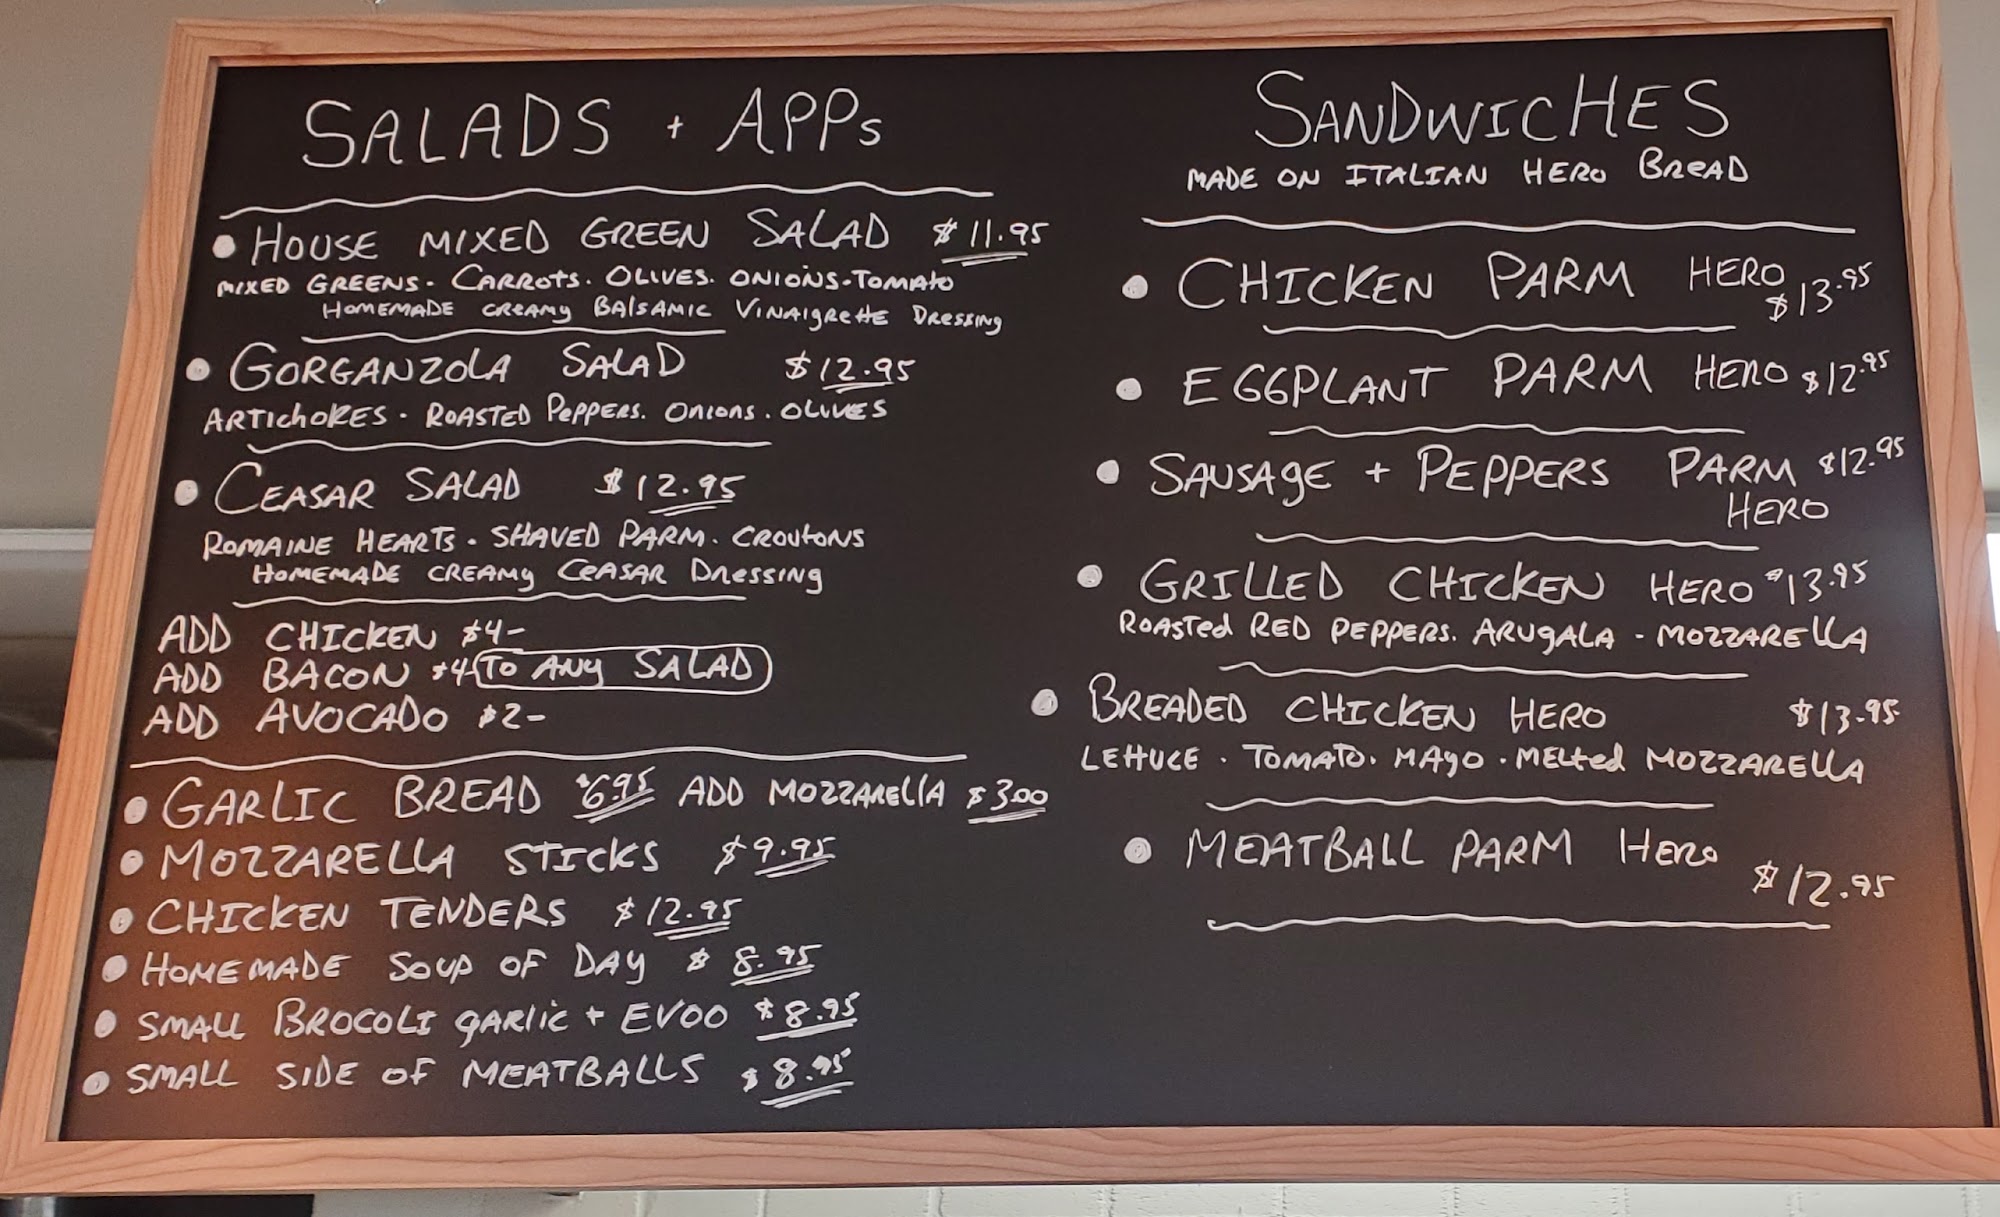 SALADS + APPS
HOUSE MIXED GREEN SALAD $11.95
MIXED GREENS. CARROTS. OLIVES. ONIONS. TOMATO
HOMEMADE CREAMY BALSAMIC VINAIGRETTE DRESSING
GORGANZOLA SALAD $12.95
ARTICHOKES. ROASTED PEPPERS. ONIONS. OLIVES
CEASAR SALAD $12.95
ROMAINE HEARTS. SHAVED PARM. CROUTONS
HOMEMADE CREAMY CEASAR DRESSING
ADD CHICKEN $4-
ADD BACON $4- TO ANY SALAD
ADD AVOCADO $2-
GARLIC BREAD $6.95 ADD MOZZARELLA $3.00
MOZZARELLA STICKS $9.95
CHICKEN TENDERS $12.95
HOMEMADE SOUP OF DAY $8.95
SMALL BROCOLI GARLIC + EVOO $8.95
SMALL SIDE OF MEATBALLS $8.95
SANDWICHES
MADE ON ITALIAN HERO BREAD
CHICKEN PARM HERO $13.95
EGGPLANT PARM HERO $12.95
SAUSAGE + PEPPERS PARM $12.95
HERO
GRILLED CHICKEN HERO $13.95
ROASTED RED PEPPERS. ARUGALA - MOZZARELLA
BREADED CHICKEN HERO $13.95
LETTUCE. TOMATO. MAYO. MELTED MOZZARELLA
MEATBALL PARM HERO
$12.95